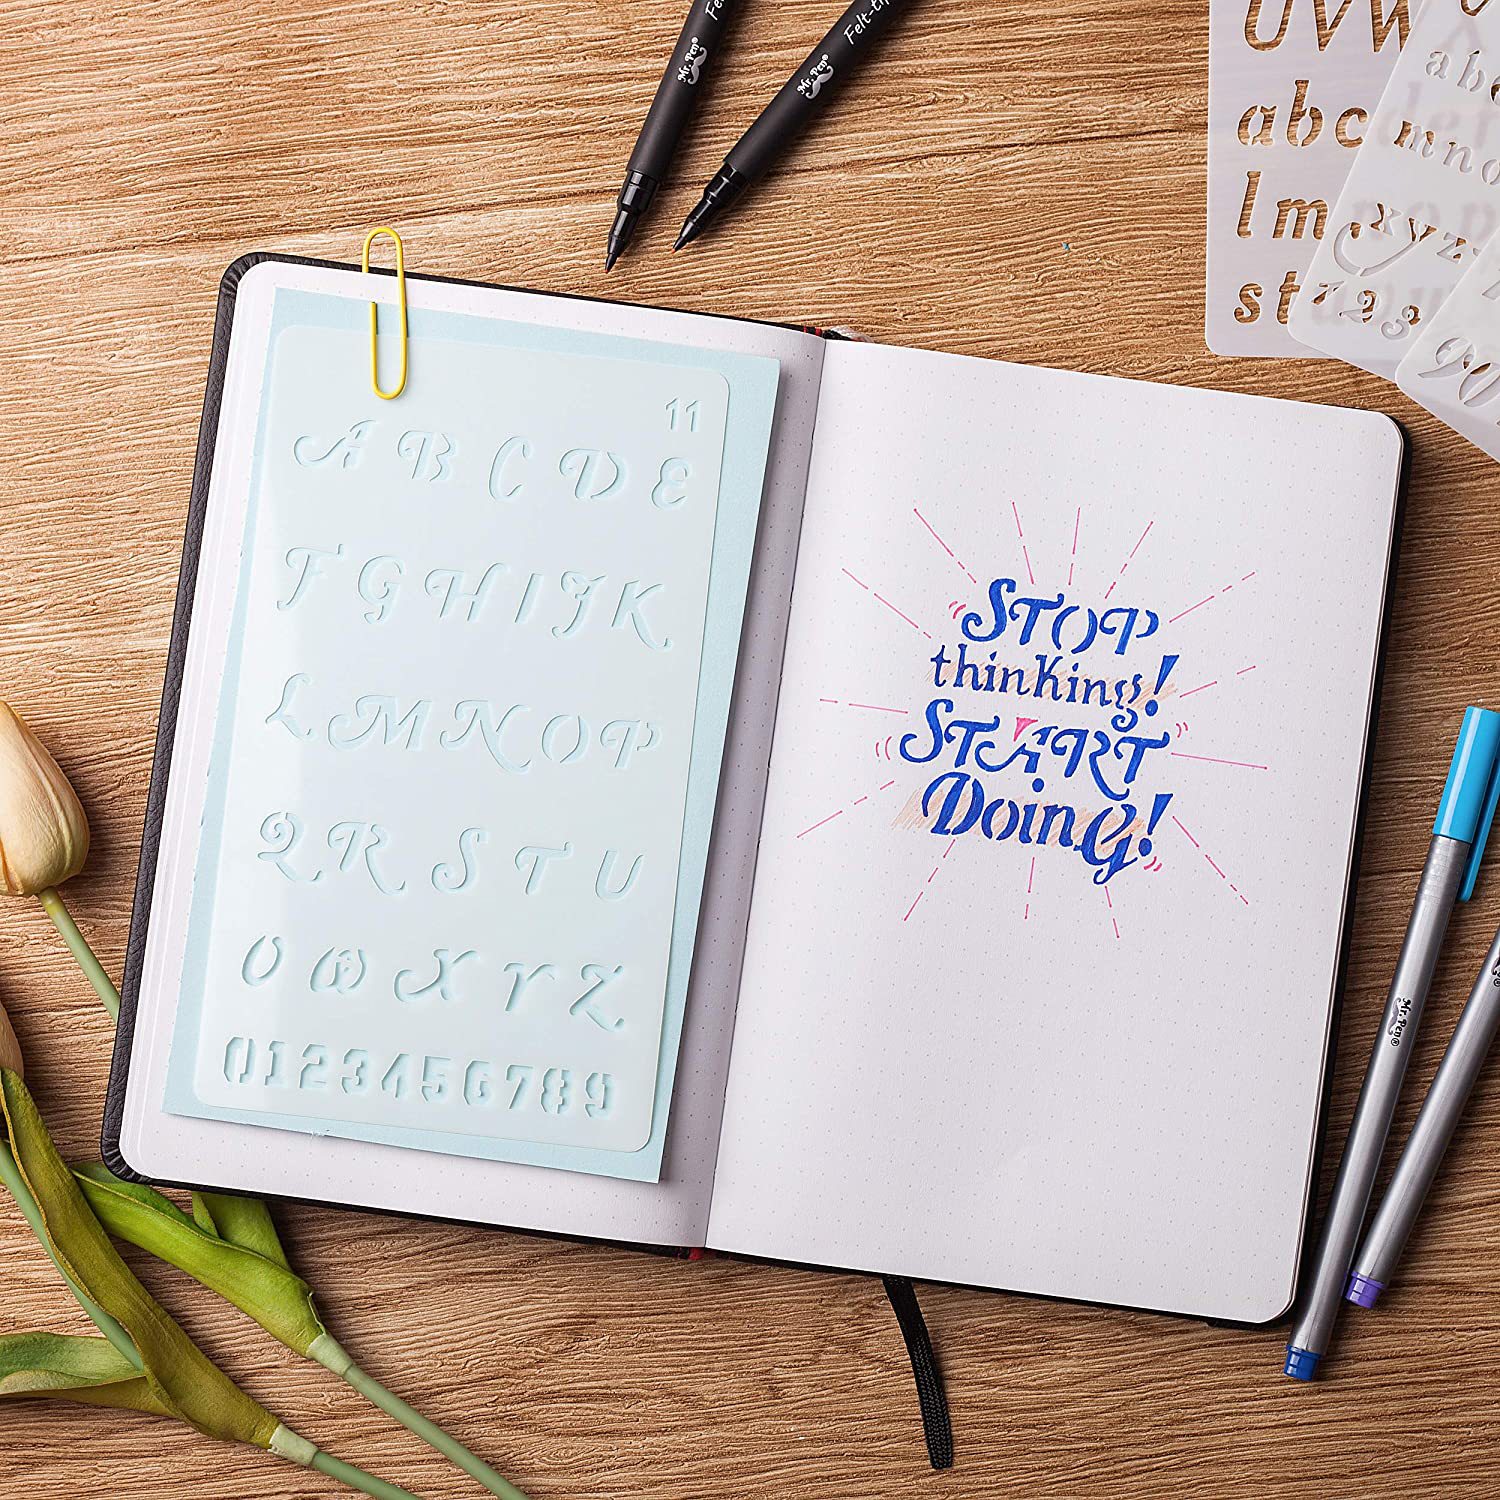 Mr. Pen®
Mr. Pen®
Felt-ti
UVW
abc
lm
st
abc
mno
xyz
123
90
11
A B C D E
F G H I J K
L M N O P
Q R S T U
V W X Y Z
0 1 2 3 4 5 6 7 8 9
STOP
thinking!
START
Doing!
Mr. Pen®